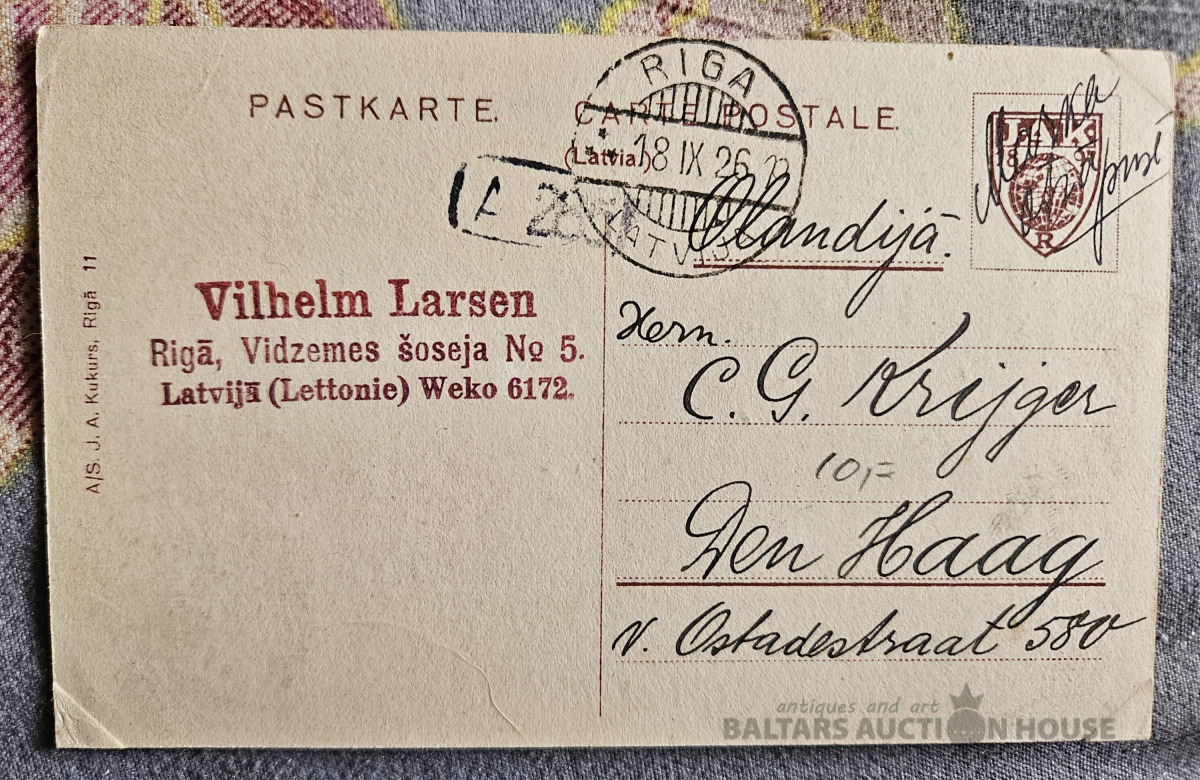 PASTKARTE. CARTE POSTALE.
(Latvia.)
RIGA
18 IX 26 22
LATVIJA
Marka
otrā pusē
18 97
R
Olandijā.
Vilhelm Larsen
Rīgā, Vidzemes šoseja № 5.
Latvijā (Lettonie) Weko 6172.
A/S. J. A. Kukurs, Rigā 11
Hern.
C. G. Krijger
10,=
Den Haag
v. Ostadestraat 580
antiques and art
BALTARS AUCTION HOUSE